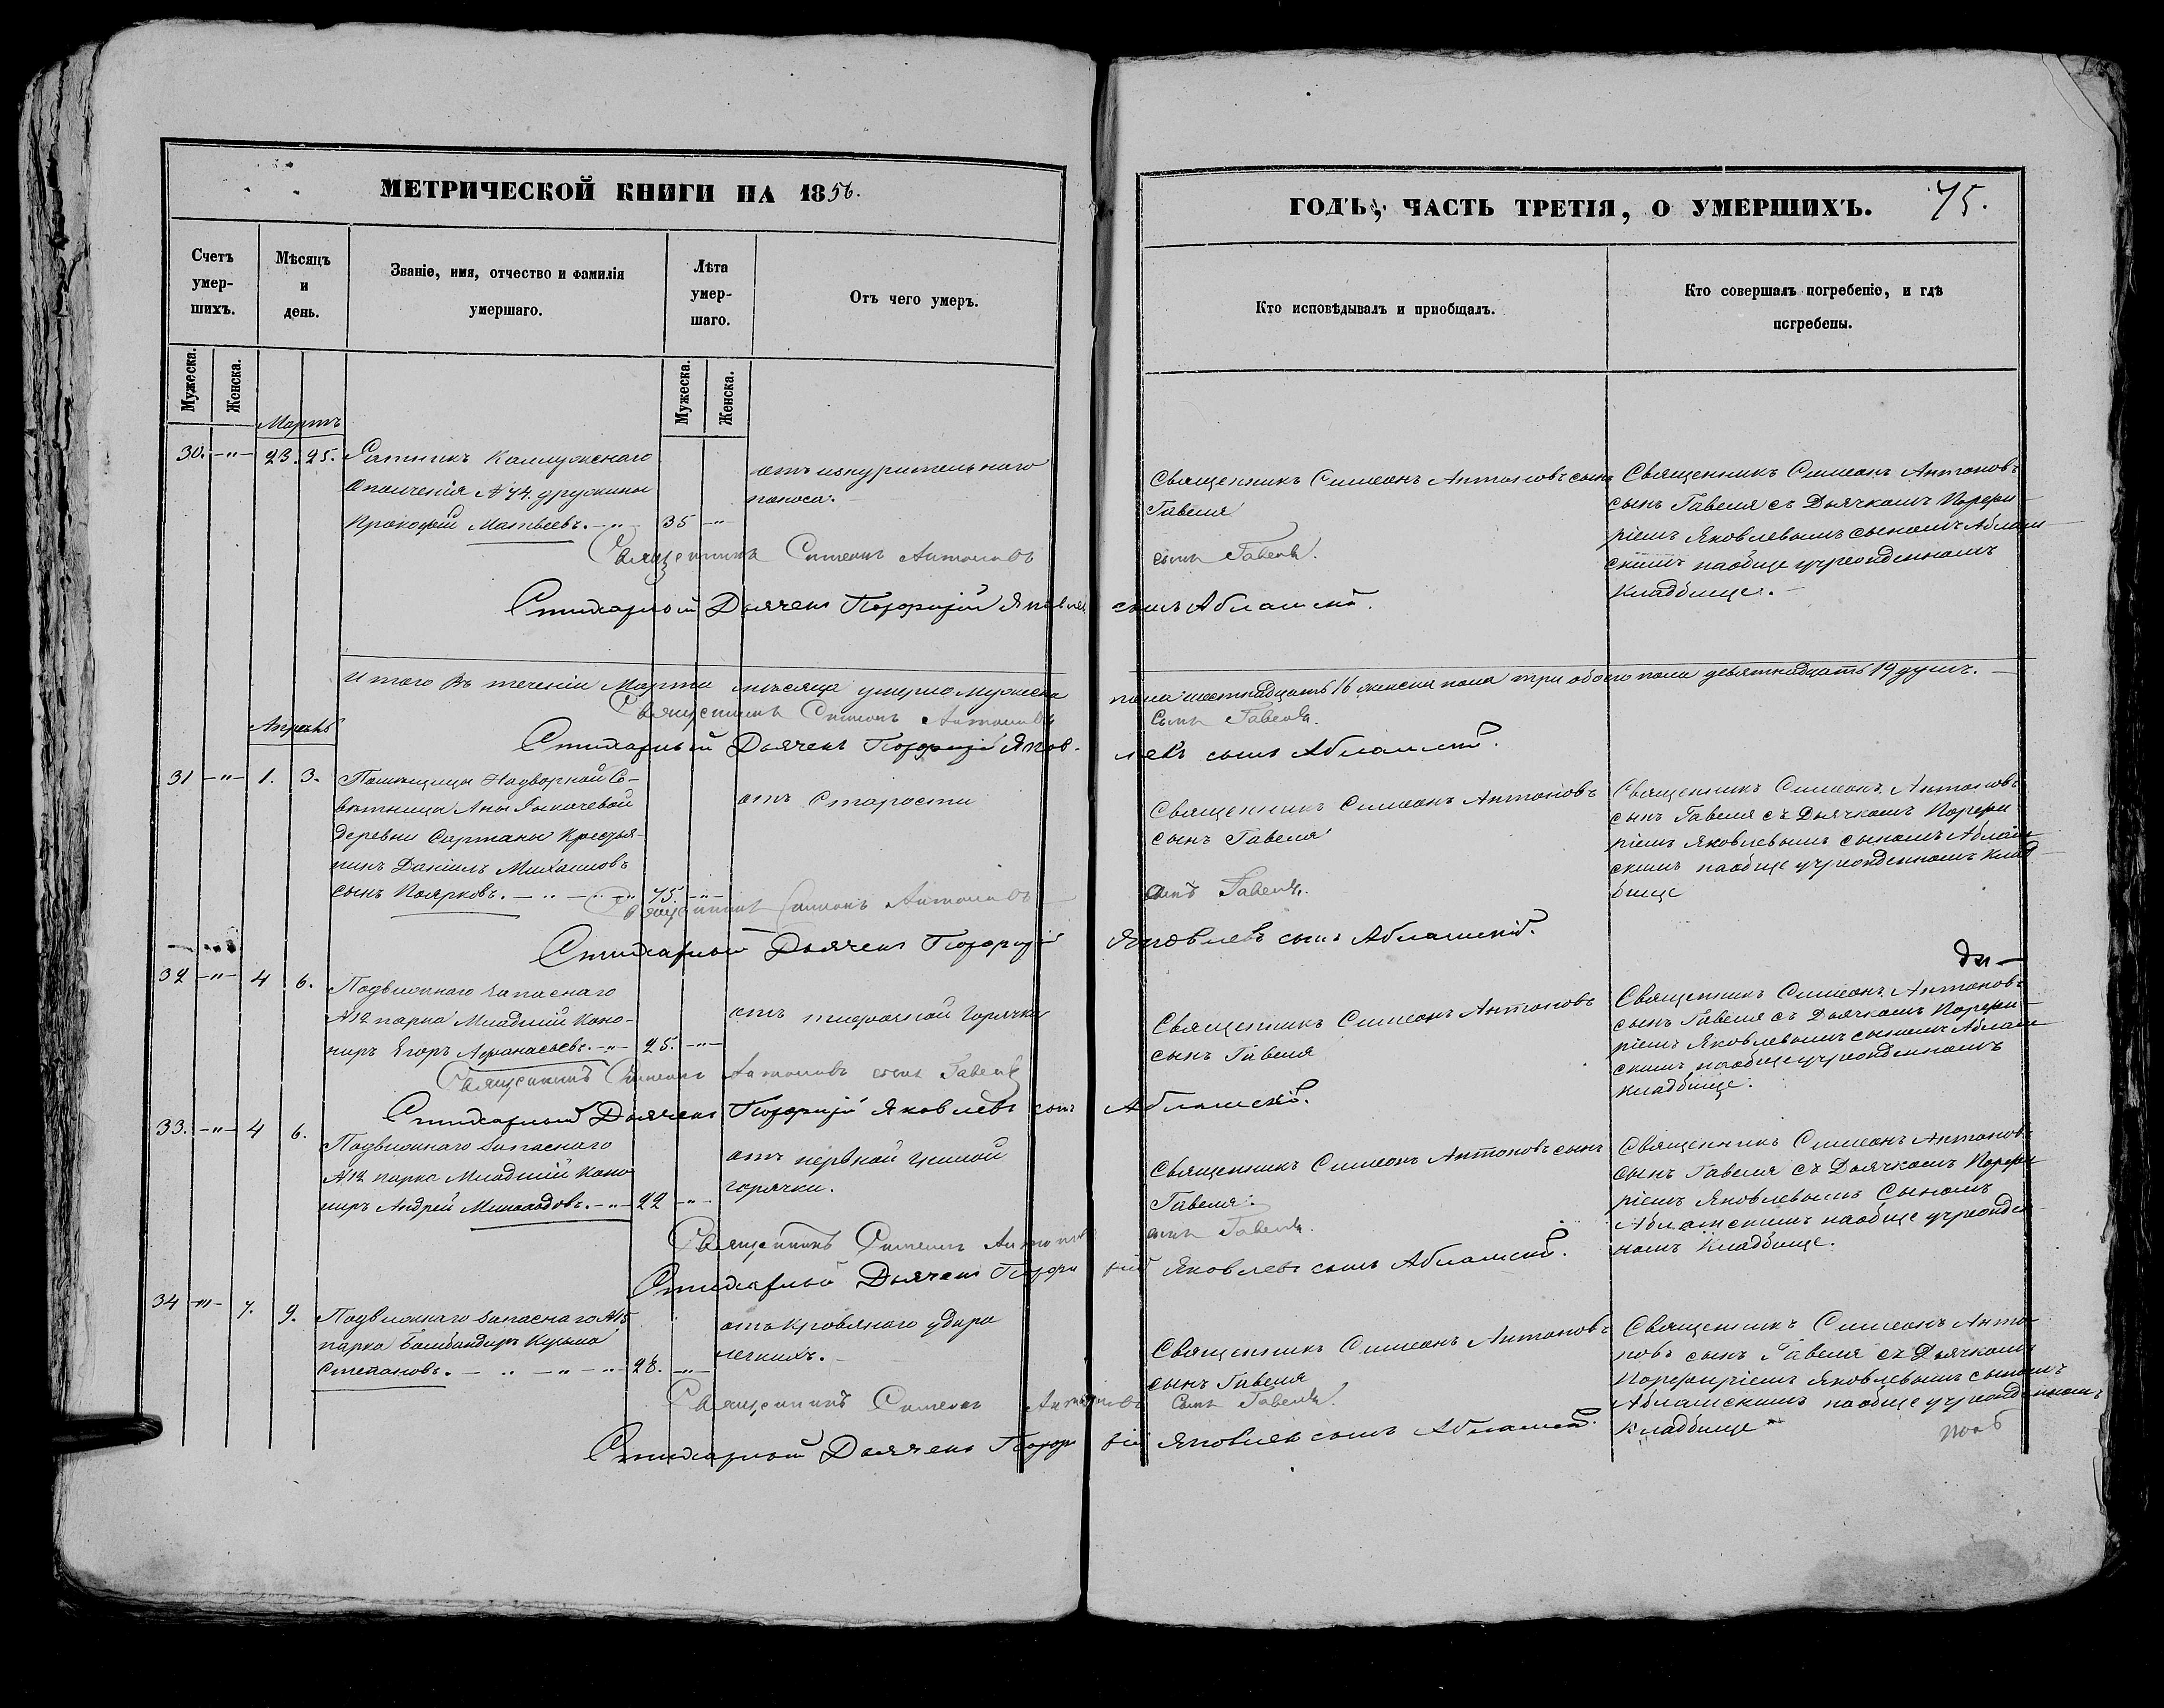 МЕТРИЧЕСКОЙ КНИГИ НА 1856.
ГОДЪ, ЧАСТЬ ТРЕТІЯ, О УМЕРШИХЪ. 75.
Счетъ умер-шихъ.
Мѣсяцъ и день.
Званіе, имя, отчество и фамилія умершаго.
Лѣта умер-шаго.
Отъ чего умеръ.
Кто исповѣдывалъ и пріобщалъ.
Кто совершалъ погребеніе, и гдѣ погребены.
Мужеска. Женска.
Мужеска. Женска.
Мартъ
30. -"- 23. 25. Ратникъ Калужскаго
Ополченія №74. дружины
Прокофій Матвеевъ. -"- 35 -"-
отъ изнурительнаго
поноса.
Священникъ Симеонъ Антоновъ сынъ
Гавеля
Священникъ Симеонъ Антоновъ
сынъ Гавеля съ Дьячкомъ Порфи-
ріемъ Яковлевымъ сыномъ Аблам-
скимъ наобще учрежденномъ
Кладбище.
Священникъ Симеонъ Антоновъ сынъ Гавеля.
Стихарный Дьячекъ Порфирій Яковлев сынъ Абламский.
Итого Въ теченіи Марта месяца умерло Мужеска пола шестнадцать 16 женска пола три обоего пола девятнадцать 19 душъ.
Священникъ Симеонъ Антоновъ сынъ Гавеля.
Стихарный Дьячекъ Порфирій Яков-левъ сынъ Абламский.
Апрель
31 -"- 1. 3. Помещицы Надворной Со-
ветницы Аны Рыкачевой
деревни Сартаны Крестья-
нинъ Даніилъ Михаиловъ
сынъ Поярковъ. 75. -"-
отъ Старости
Священникъ Симеонъ Антоновъ
сынъ Гавеля
Священникъ Симеонъ Антоновъ
сынъ Гавеля съ Дьячкомъ Порфи-
ріемъ Яковлевымъ сыномъ Аблам-
скимъ наобще учрежденномъ Клад-
бище
Священникъ Симеонъ Антоновъ сынъ Гавеля.
Стихарный Дьячекъ Порфирій Яковлевъ сынъ Абламский.
32 -"- 4 6. Подвижнаго Запаснаго
№12 парка Младшій Кано-
ниръ Егоръ Афанасьевъ. -"- 25. -"-
отъ тифозной горячки
Священникъ Симеонъ Антоновъ
сынъ Гавеля
Священникъ Симеонъ Антоновъ
сынъ Гавеля съ Дьячкомъ Порфи-
ріемъ Яковлевымъ сыномъ Аблам-
скимъ наобще учрежденномъ
кладбище.
Священникъ Симеонъ Антоновъ сынъ Гавеля
Стихарный Дьячекъ Порфирій Яковлевъ сынъ Абламский.
33. -"- 4 6. Подвижнаго Запаснаго
№12 парка Младшій Кано-
ниръ Андрей -"- 22 -"-
отъ нервной гнилой
горячки.
Священникъ Симеонъ Антоновъ сынъ
Гавеля.
Священникъ Симеонъ Антоновъ
сынъ Гавеля съ Дьячкомъ Порфи-
ріемъ Яковлевымъ Сыномъ
Абламскимъ наобще учрежден-
номъ Кладбище.
Священникъ Симеонъ Антоновъ сынъ Гавеля.
Стихарный Дьячекъ Порфирій Яковлевъ сынъ Абламский.
34 -"- 7. 9. Подвижнаго Запаснаго
парка Бомбандиръ Кузьма
Степановъ. 28. -"-
отъ Кровянаго удара
легкихъ.
Священникъ Симеонъ Антоновъ
сынъ Гавеля
Священникъ Симеонъ Анто-
новъ сынъ Гавеля съ Дьячкомъ
Порфиріемъ Яковлевымъ сыномъ
Абламскимъ наобще учрежденномъ
Кладбище
Священникъ Симеонъ Антоновъ Сынъ Гавеля.
Стихарный Дьячекъ Порфирій Яковлев сынъ Абламский.